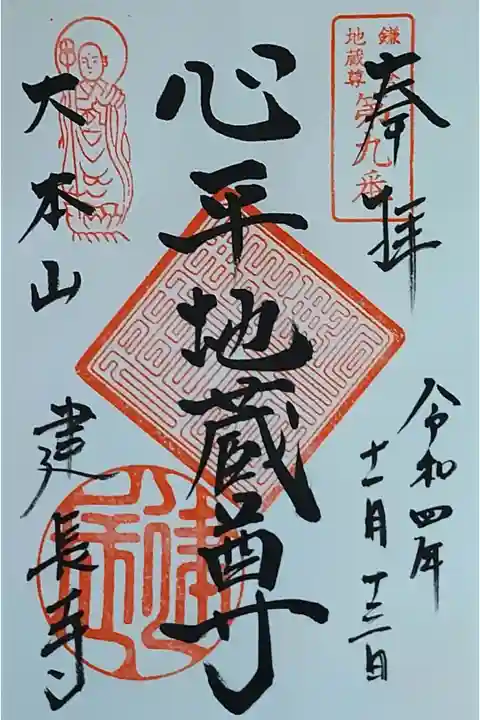 奉拝
鎌
地蔵尊
第九番
令和四年
十一月十三日
心平地蔵尊
大本山
建長寺